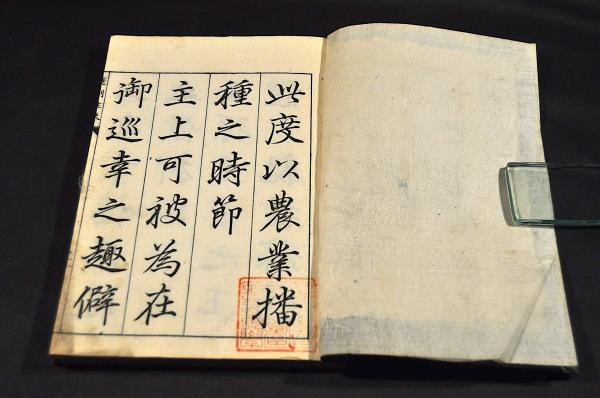 此度以農業播
種之時節
主上可被為在
御巡幸之趣僻